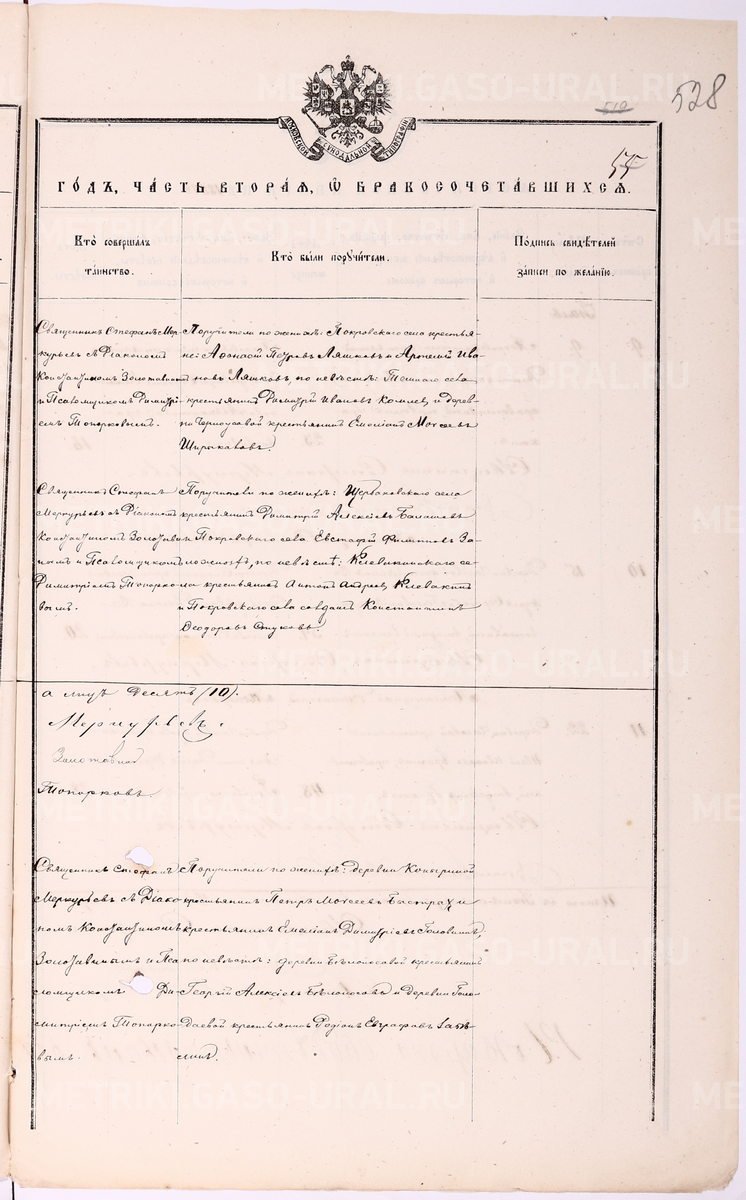 528
510
55
МОСКОВСКОЙ СѴНОДАЛЬНОЙ ТИПОГРАФІИ
ГОДЪ, ЧАСТЬ ВТОРАЯ, Ѡ БРАКОСОЧЕТАВШИХСЯ.
Кто совершалъ
таинство.
Кто были поручители.
Подпись свидѣтелей
записи по желанію.
Священникъ Стефанъ Мер-
курьевъ съ Діакономъ
Константиномъ Золотавинымъ
и Псаломщикомъ Димитрі-
емъ Топорковымъ.
Поручители по женихѣ: Покровскаго села крестья-
не: Аѳонасій Петровъ Ляшковъ и Артемій Ива-
новъ Ляшковъ, по невѣстѣ: Тогоже села
крестьянинъ Димитрій Ивановъ Комлевъ и дерев-
ни Черноусовой крестьянинъ Емеліанъ Моѵсеевъ
Священникъ Стефанъ
Меркурьевъ съ Діакономъ
Константиномъ Золотави-
нымъ и Псаломщикомъ
Димитріемъ Топорко-
вымъ.
Поручители по женихѣ: Щербаковскаго села
крестьянинъ Димитрій Алексіевъ Балашевъ
и Покровскаго села Евстафій Филиповъ За-
ложновъ, по невѣстѣ: Клевакинскаго се-
ла крестьянинъ Антонъ Андреевъ Клевакинъ
и Покровскаго села солдатъ Константинъ
Ѳеодоровъ Стуковъ.
а лицъ десять (10).
Меркурьевъ.
Золотавинъ
Топорковъ.
Священникъ Стефанъ
Меркурьевъ съ Діако-
номъ Константиномъ
Золотавинымъ и Пса-
ломщикомъ Ди-
митріемъ Топорко-
вымъ.
Поручители по женихѣ: деревни
крестьянинъ Петръ Моѵсеевъ Быстрахъ и
крестьянинъ Емеліанъ Димитріевъ Головинъ,
по невѣстѣ: деревни Бѣлоносовой крестьянинъ
Георгій Алексіевъ Бѣлоносовъ и деревни Голо-
даевой крестьянинъ Родіонъ Евграфовъ
METRIKI.GASO-URAL.RU